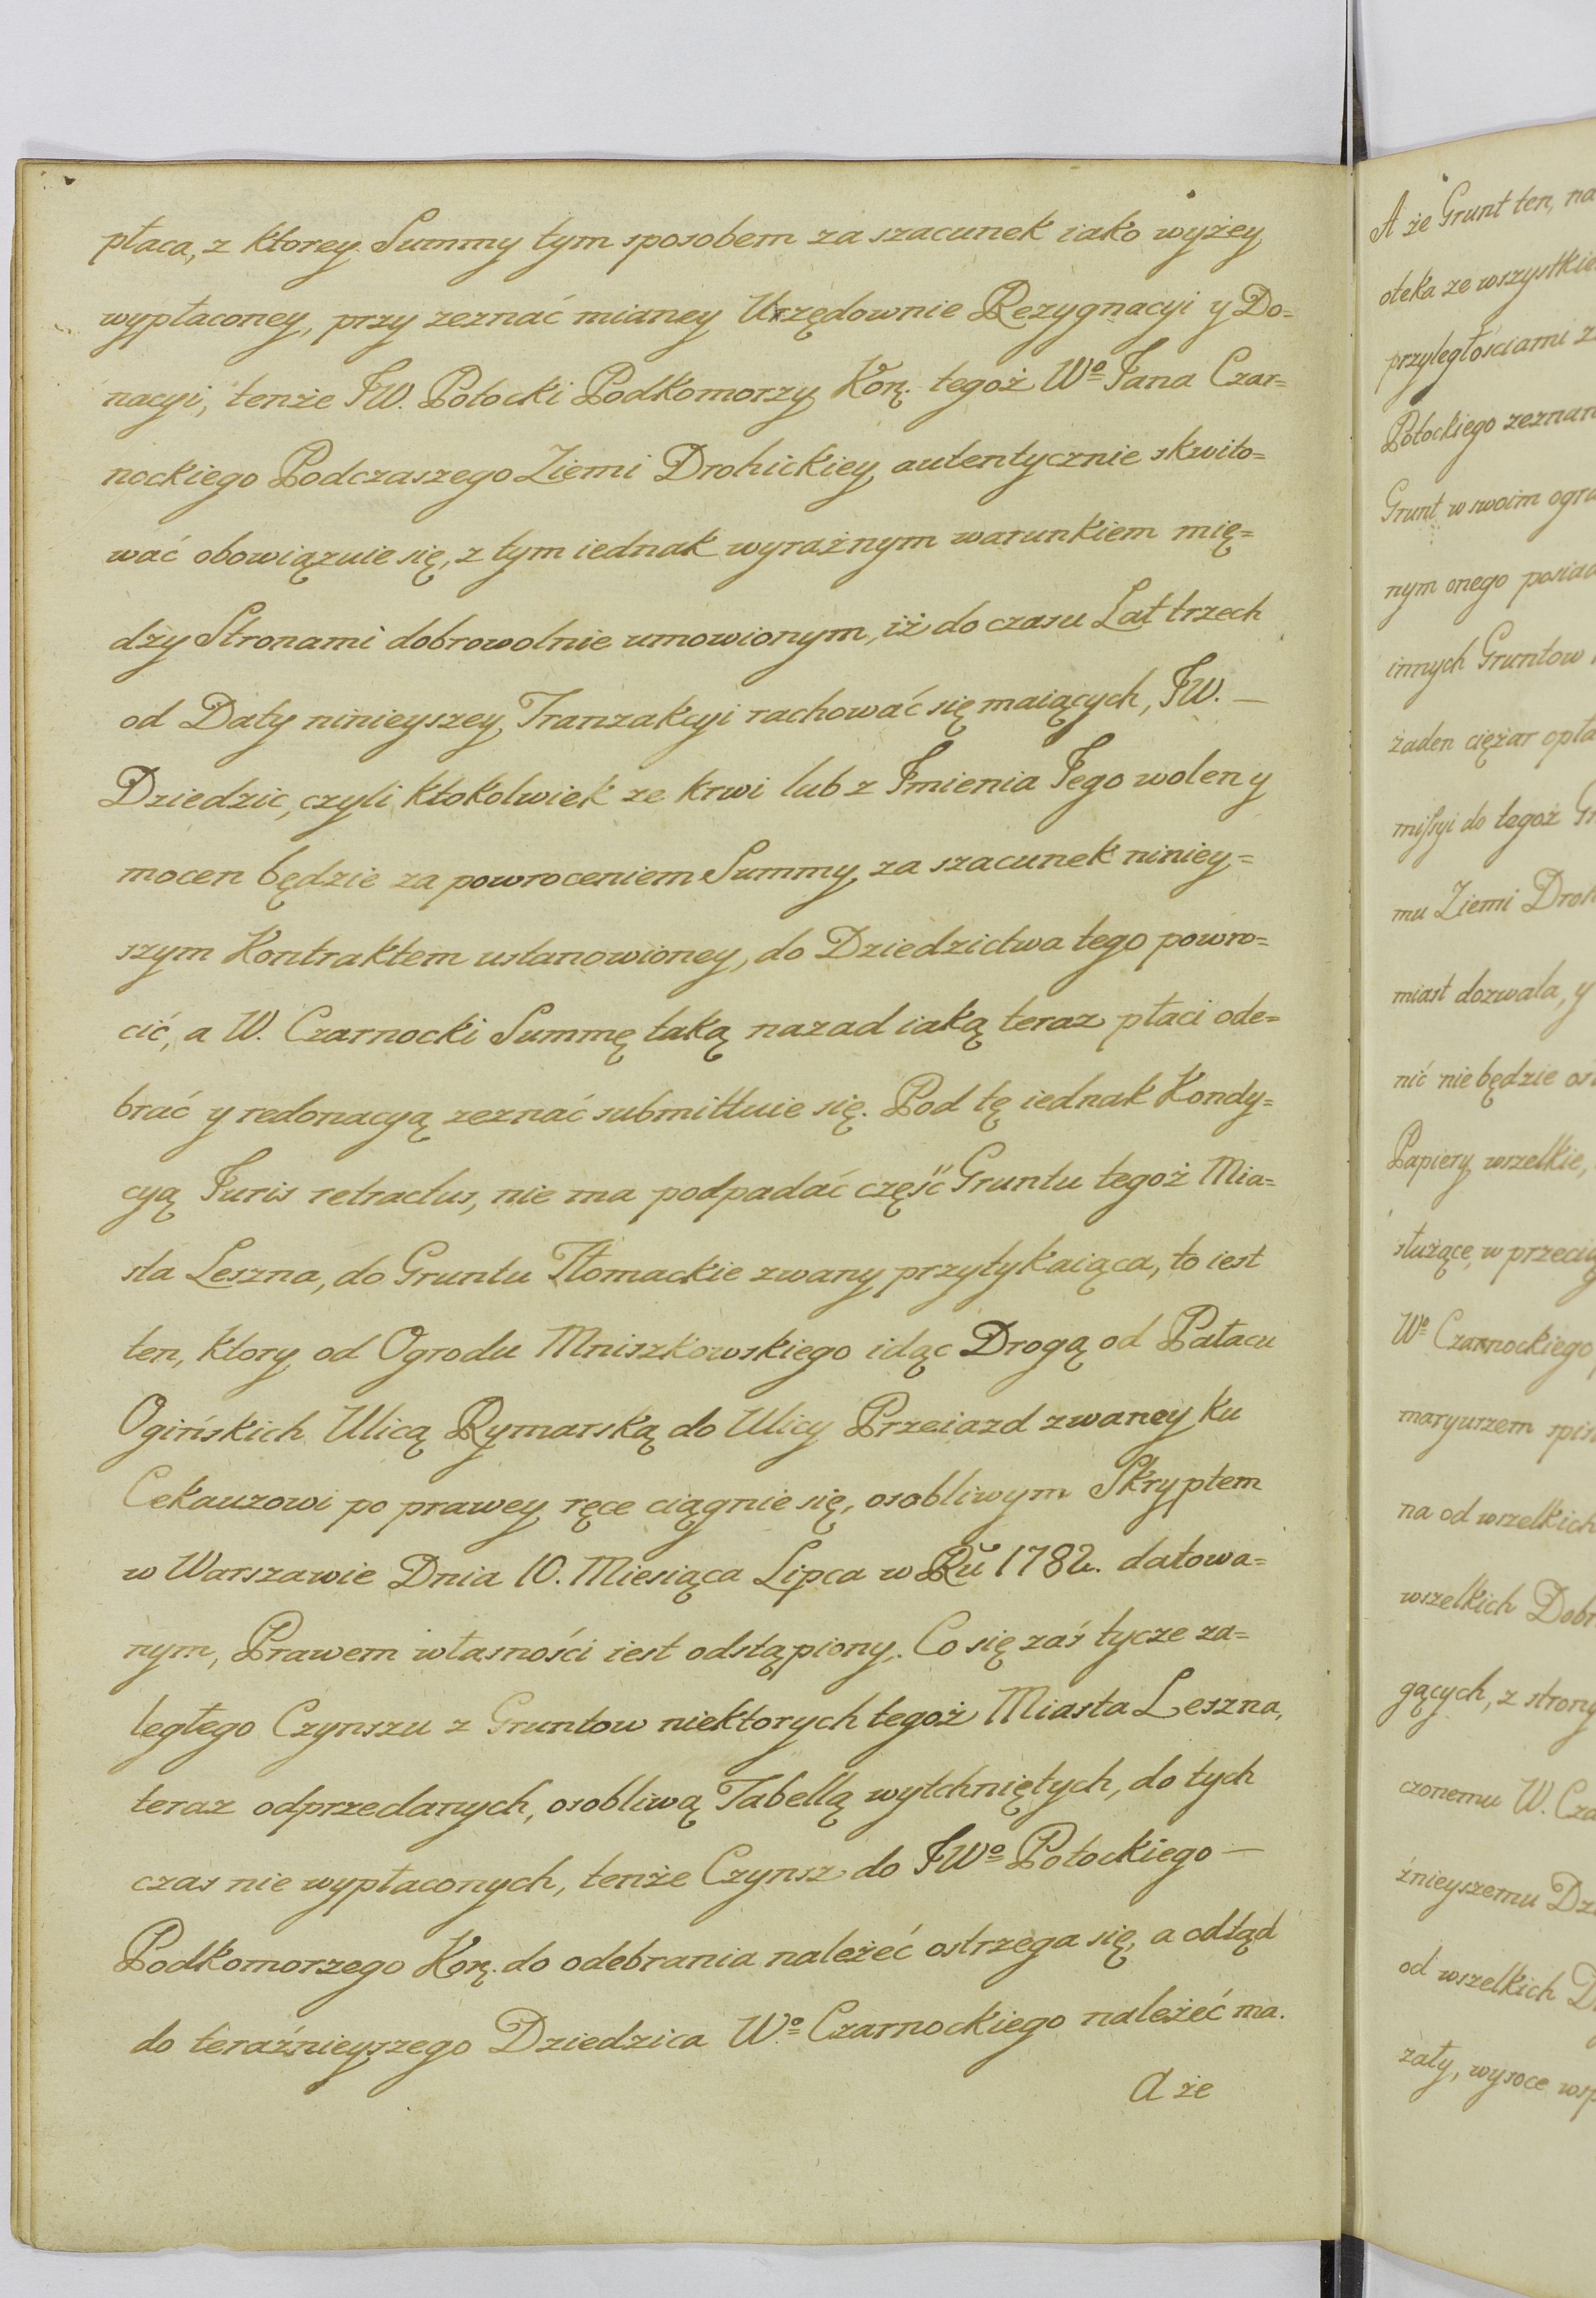 płaca, z ktorey Summy tym sposobem za szacunek iako wyżey
wypłaconey, przy zeznać mianey Urzędownie Rezygnacyi y Do=
nacyi, tenże JW. Potocki Podkomorzy Korq. tegoż Wo= Jana Czar=
nockiego Podczaszego Ziemi Drohickiey autentycznie skwito=
wać obowiązuie się, z tym iednak wyrażnym warunkiem mię=
dży Stronami dobrowolnie umowionym, iż do czasu Lat trzech
od Daty ninieyszey Tranzakcyi rachować się maiących, JW. —
Dziedzic, czyli ktokolwiek ze krwi lub z Jmienia Jego wolen y
mocen będzie za powroceniem Summy za szacunek niniey=
szym Kontraktem ustanowioney, do Dziedzictwa tego powro=
cić, a W. Czarnocki Summę taką nazad iaką teraz płaci ode=
brać y redonacyą zeznać submittuie się. Pod tę iednak Kondy=
cyą Juris retractus, nie ma podpadać częśc Gruntu tegoż Mia=
sta Leszna, do Gruntu Tłomackie zwany przytykaiąca, to iest
ten, ktory od Ogrodu Mniszkowskiego idąc Drogą od Pałacu
Ogińskich Ulicą Rymarską do Ulicy Przeiazd zwaney ku
Cekauzowi po prawey ręce ciągnie się, osobliwym Skryptem
w Warszawie Dnia 10. Miesiąca Lipca w Rũ 1782. datowa=
nym, Prawem własności iest odstąpiony. Co się zaś tycze za=
ległego Czynszu z Gruntow niektorych tegoż Miasta Leszna,
teraz odprzedanych, osobliwą Tabellą wytchniętych, do tych
czas nie wypłaconych, tenże Czynsz do JWo= Potockiego —
Podkomorzego Korq. do odebrania należeć ostrzega się, a odtąd
do teraźnieyszego Dziedzica Wo= Czarnockiego należeć ma.
A że
A że Grunt ten, na
oteka ze wszystkie
przyległościami z
Potockiego zeznan
Grunt w swoim ogra
nym onego posiad
innych Gruntow
żaden ciężar opła
missyi do tegoż Gr
mu Ziemi Droh
miast dozwala, y
nić nie będzie os
Papiery wszelkie,
służące, w przecią
Wo= Czarnockiego
maryuszem spis
na od wszelkich
wszelkich Dobr
gących, z strony
czonemu W. Cza
źnieyszemu Dz
od wszelkich D
zały, wysoce wsp